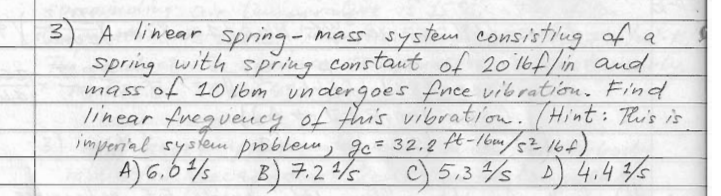 3) A linear spring-mass system consisting of a
spring with spring constant of 20 lbf/in and
mass of 10 lbm undergoes free vibration. Find
linear frequency of this vibration. (Hint: This is
imperial system problem, gc = 32.2 ft-lbm/s² lbf)
A) 6.0 1/s B) 7.2 1/s C) 5.3 1/s D) 4.4 1/s